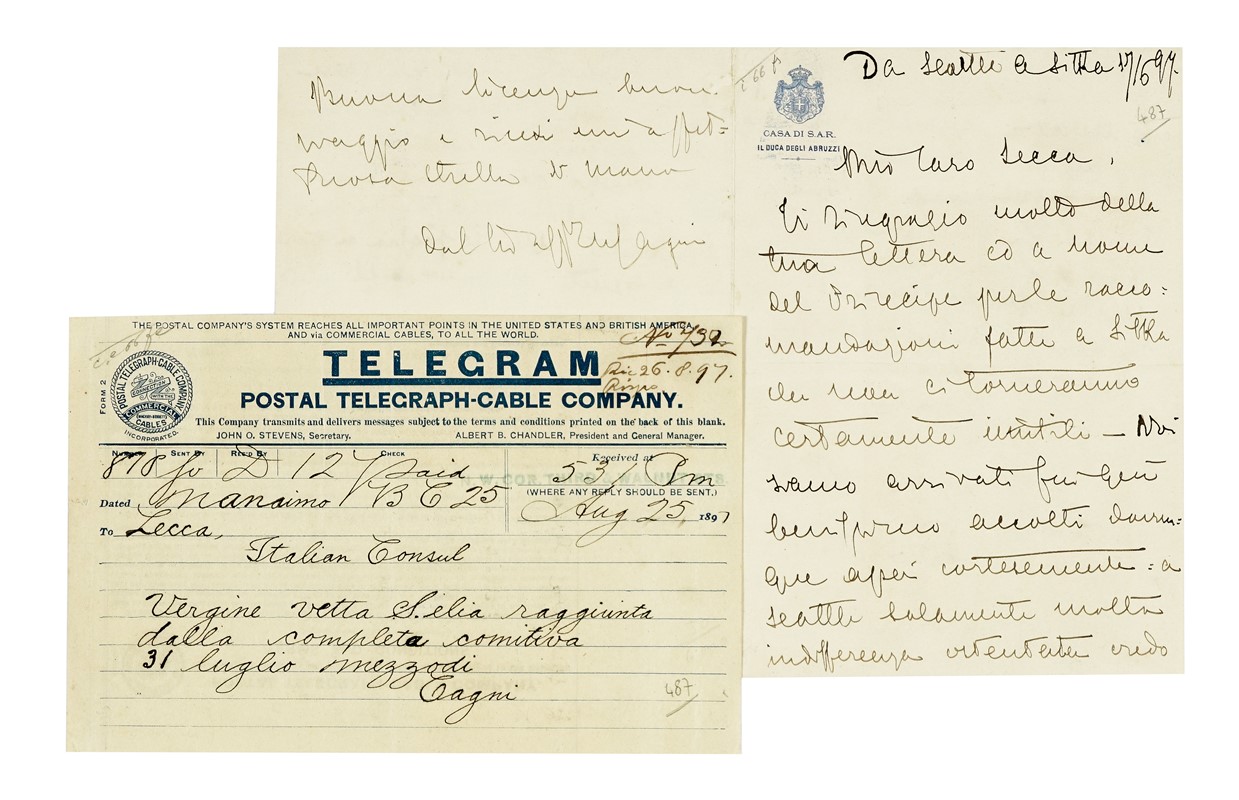 Buona licenza buon
viaggio e ricevi un'affet=
tuosa stretta di mano
Dal tuo aff Cagni
Da Seattle a Sitka 17/6 97.
487
CASA DI S.A.R.
IL DUCA DEGLI ABRUZZI
Mio Caro Lecca,
Ti ringrazio molto della
tua lettera ed a nome
del Principe per le racco:
mandazioni fatte a Sitka
che non ci torneranno
certamente inutili – Noi
siamo arrivati fin qui
benissimo accolti dovun=
que assai cortesemente: a
Seattle solamente molta
indifferenza ostentata credo
THE POSTAL COMPANY'S SYSTEM REACHES ALL IMPORTANT POINTS IN THE UNITED STATES AND BRITISH AMERICA,
AND via COMMERCIAL CABLES, TO ALL THE WORLD.
No 732
TELEGRAM
Ric 26.8.97.
POSTAL TELEGRAPH-CABLE COMPANY.
FORM 2
POSTAL TELEGRAPH-CABLE COMPANY
COMMERCIAL
CABLES
INCORPORATED.
This Company transmits and delivers messages subject to the terms and conditions printed on the back of this blank.
JOHN O. STEVENS, Secretary. ALBERT B. CHANDLER, President and General Manager.
NUMBER SENT BY REC'D BY CHECK Received at
878 Jo D 12 Paid 531 Pm
(WHERE ANY REPLY SHOULD BE SENT.)
Dated Nanaimo B C 25 Aug 25, 1897
To Lecca,
Italian Consul
Vergine vetta S. elia raggiunta
dalla completa comitiva
31 luglio mezzodi
Cagni
487